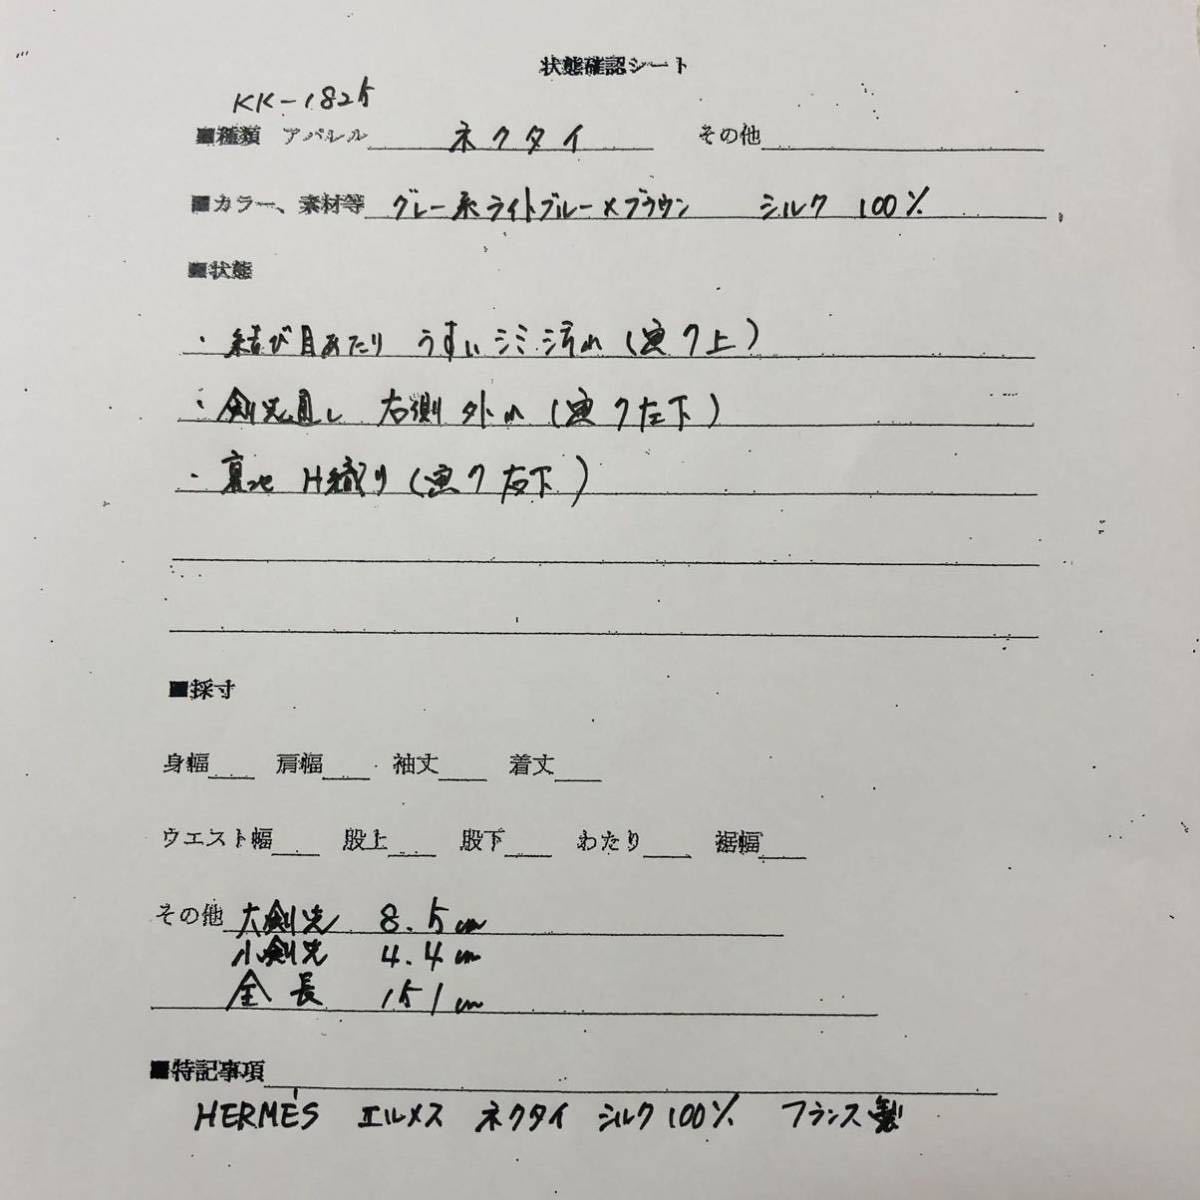 状態確認シート
KK-1825
■種類 アパレル ネクタイ その他
■カラー、素材等 グレー系ライトブルー×ブラウン シルク 100%
■状態
・結び目あたり うすいシミ汚れ(重ク上)
・剣先直し 右側 外れ(重ク左下)
・裏地 H織り(重ク右下)
■採寸
身幅 肩幅 袖丈 着丈
ウエスト幅 股上 股下 わたり 裾幅
その他 大剣先 8.5cm
小剣先 4.4cm
全長 151cm
■特記事項
HERMÈS エルメス ネクタイ シルク100% フランス製